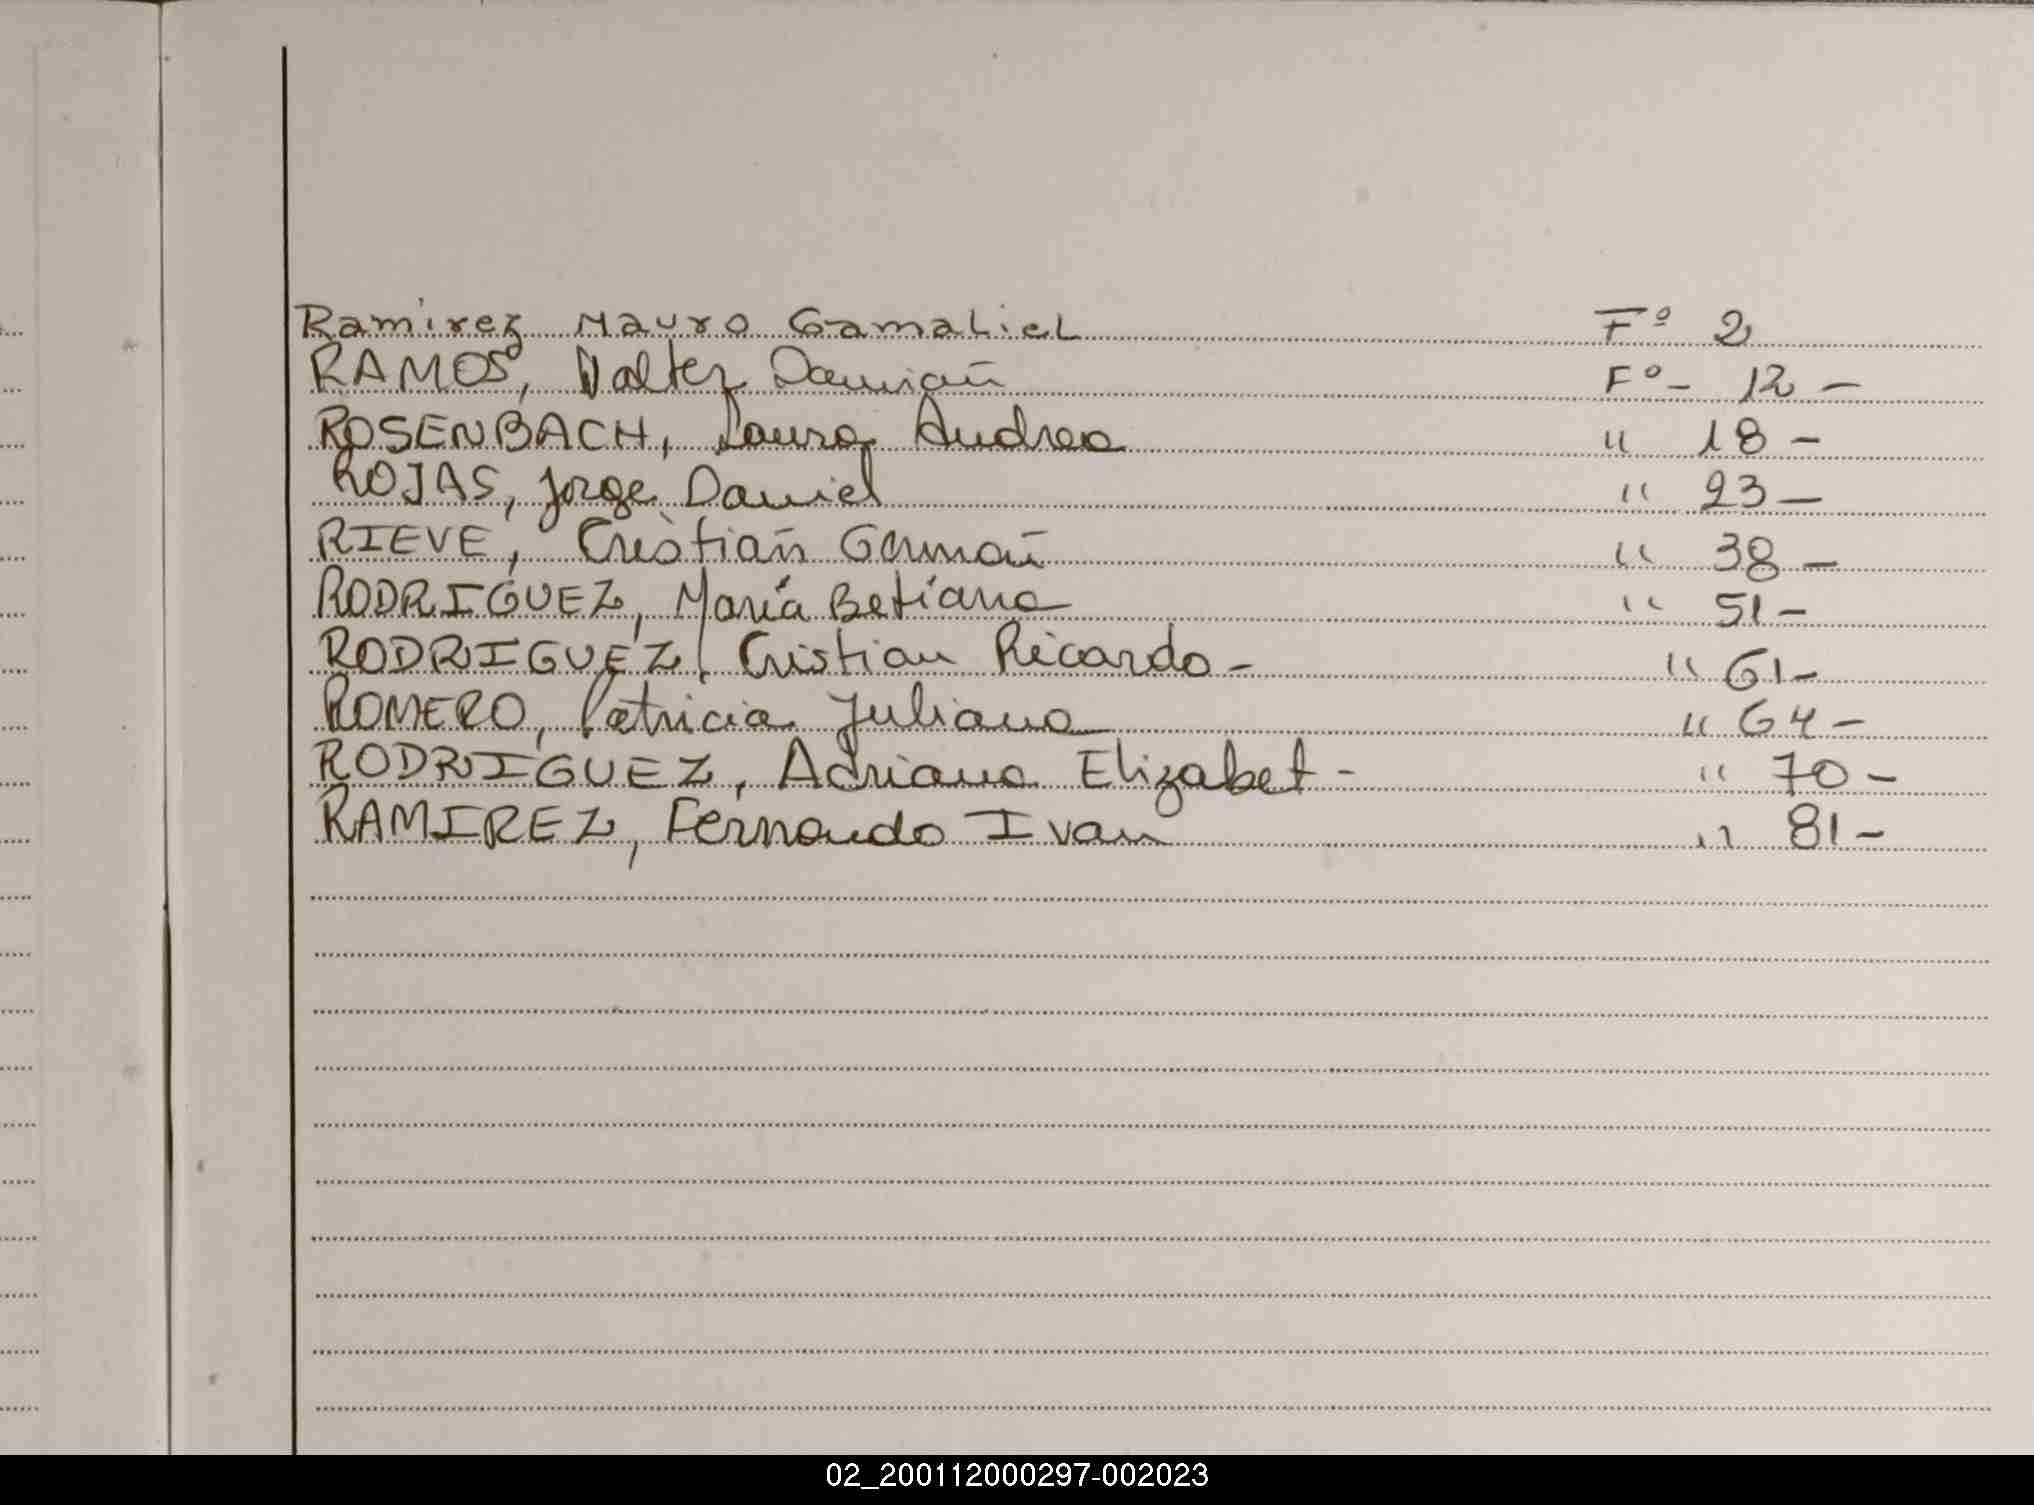 Ramirez Mauro Gamaliel Fº 2
RAMOS, Walter Damián Fº- 12 -
ROSENBACH, Laura Andrea " 18 -
ROJAS, Jorge Daniel " 23 -
RIEVE, Cristian Germán " 38 -
RODRIGUEZ, María Betiana " 51 -
RODRIGUEZ, Cristian Ricardo - " 61 -
ROMERO, Patricia Juliana " 64 -
RODRIGUEZ, Adriana Elizabet - " 70 -
RAMIREZ, Fernando Ivan " 81 -
02_200112000297-002023